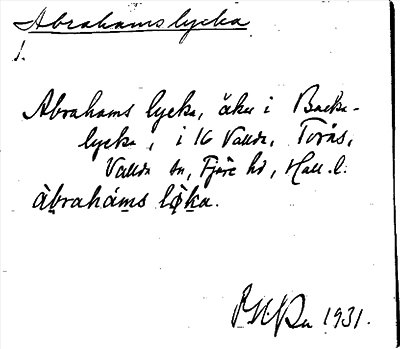 Abrahamslycka
1.
Abrahams lycka, åker i Backa-
lycka, i 16 Vallda, Torås,
Vallda sn, Fjäre hd, Hall. l.
àbrahá̱ms lø̀ḵa.
1931.